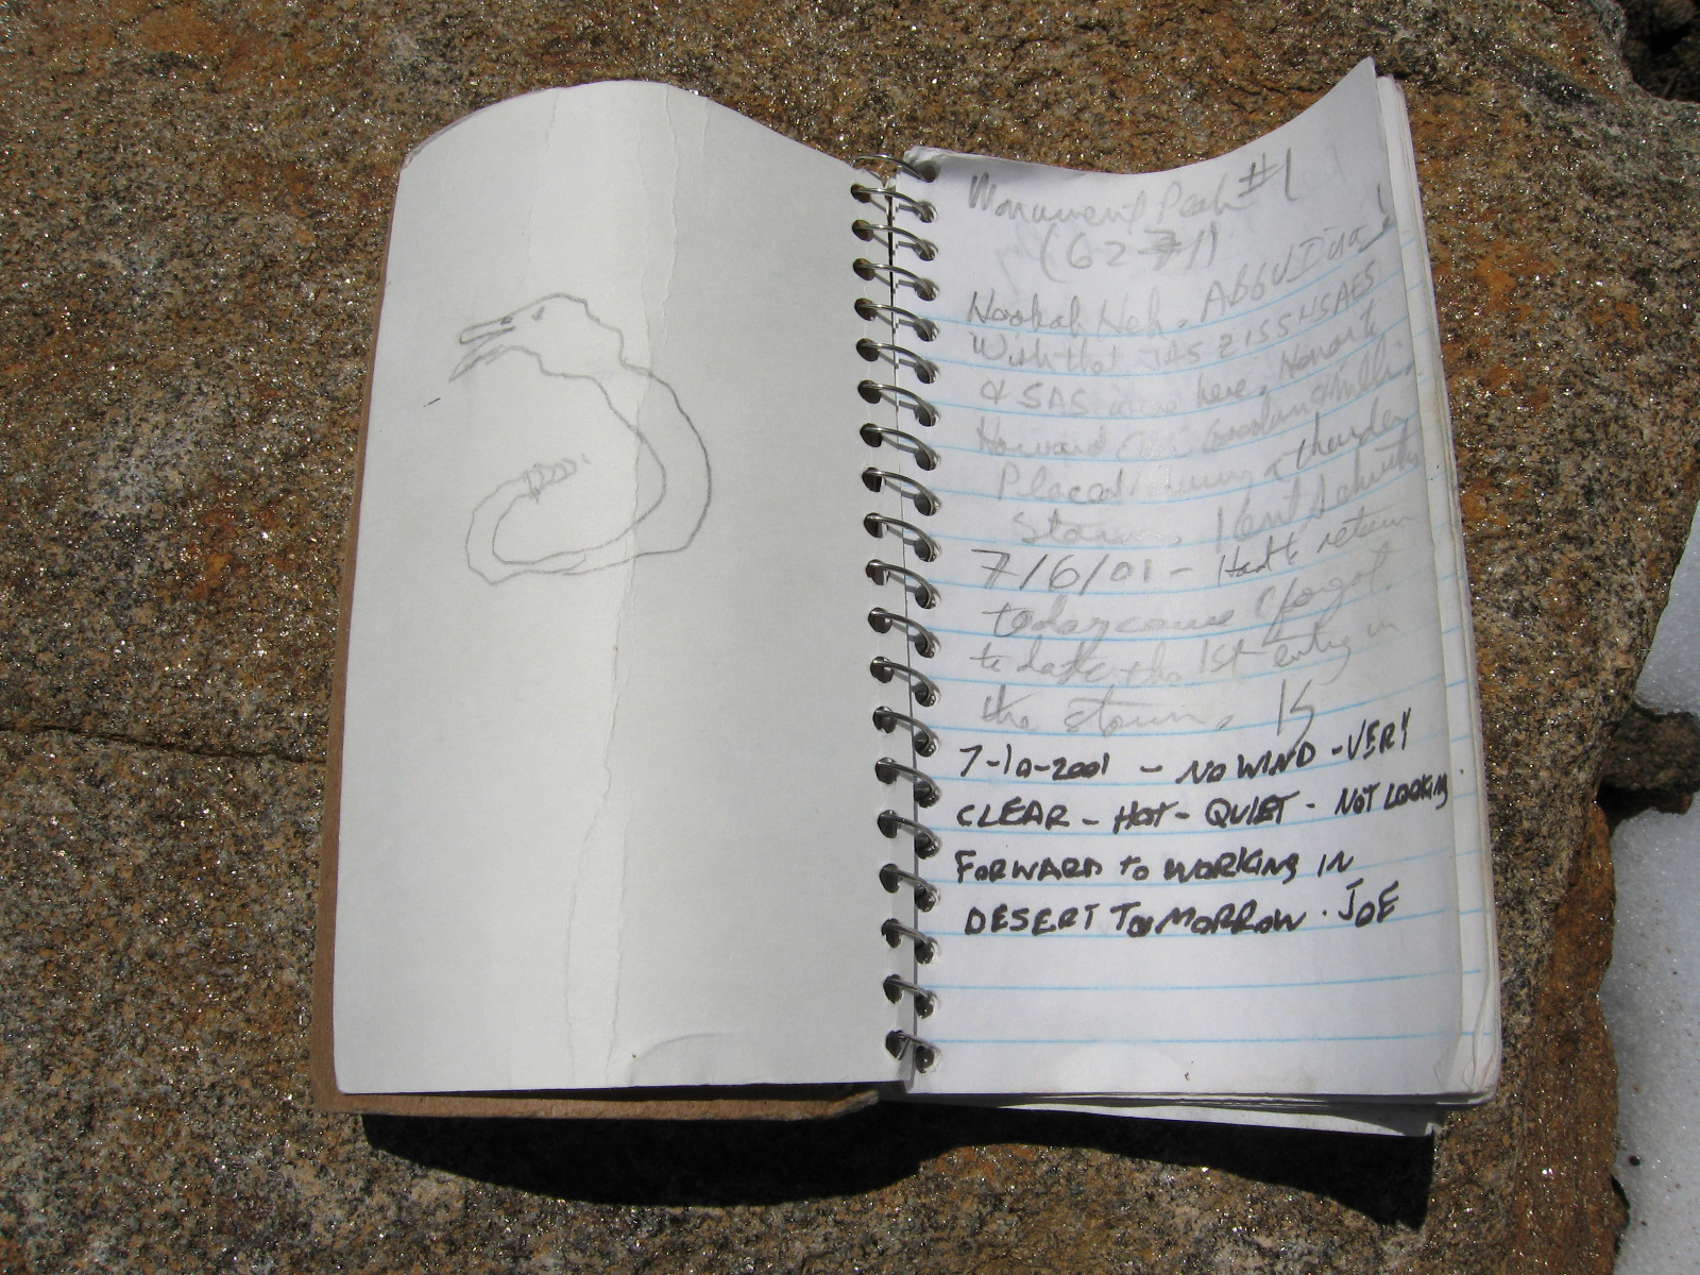 Monument Peak #1
(6271)
Nookah Neh.
Wish that & SAS were here. Honor to
Howard
Placed during a thunder
storm.
7/6/01 - Had to return
today cause I forgot
to date the 1st entry in
the storm. K
7-10-2001 - NO WIND - VERY
CLEAR - HOT - QUIET - NOT LOOKING
FORWARD TO WORKING IN
DESERT TOMORROW. JOE